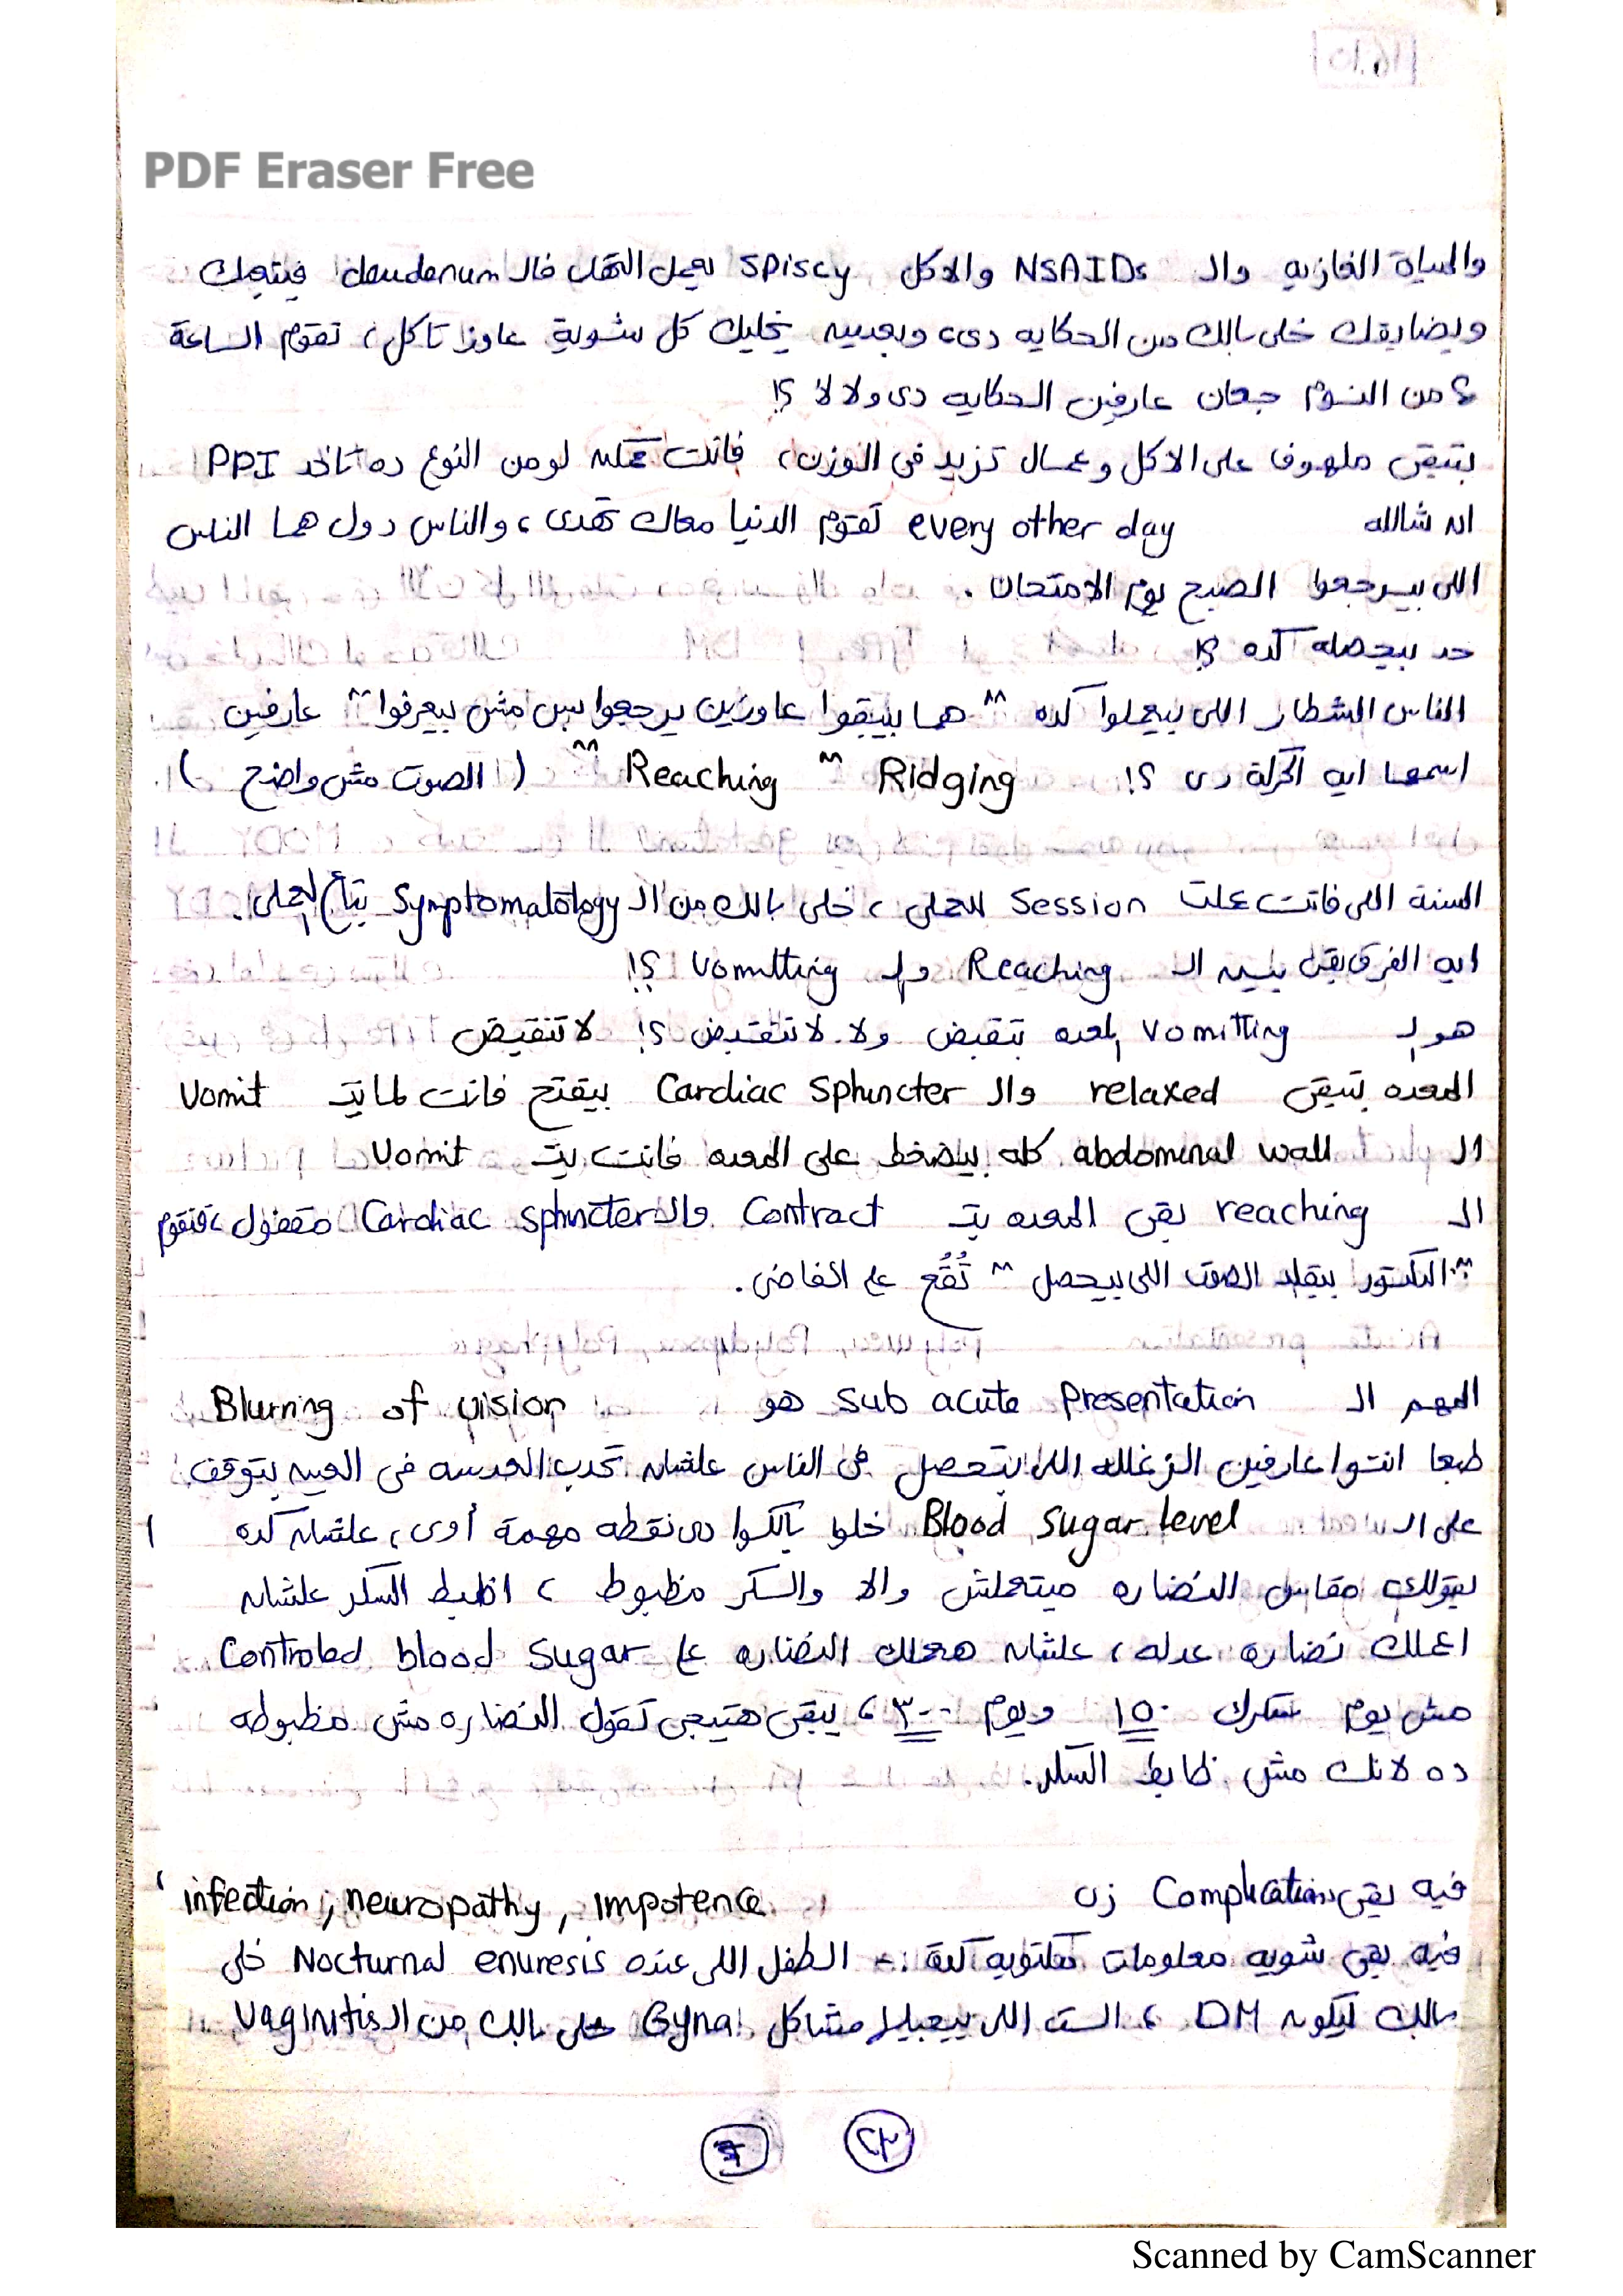 PDF Eraser Free
والمياة الغازيه وال NSAIDs والاكل spiscy يعمل التهاب فال deudenum فيتعبك
ويضايقك خلى بالك من الحكايه دى، وبعديه يخليك كل شوية عاوز تاكل، تقوم الساعة
٤ من النوم جعان عارفين الحكايه دى ولا لأ ؟!
بتبقى ملهوف على الاكل وعمال تزيد فى الوزن، فانت ممكن لو من النوع ده تاخد PPI
ان شالله every other day تقوم الدنيا معاك تهدى، والناس دول هما الناس
اللى بيرجعوا الصبح يوم الامتحان .
حد بيحصله كده ؟!
الناس الشطار اللى بيعملوا كده " هما بيبقوا عاوزين يرجعوا بس مش بيعرفوا " عارفين
اسمها ايه الحركة دى ؟! Ridging " Reaching " ( الصوت مش واضح )
السنة اللى فاتت عملت Session للحملى، خلى بالك من ال Symptomatology بتاع الحملى.
ايه الفرق بقى بين ال Reaching وال vomitting ؟!
هو ال vomitting المعده بتقبض ولا لا تنقبض ؟! لا تنقبض
المعده بتبقى relaxed وال Cardiac sphincter بيفتح فانت لما بتـ vomit
ال abdominal wall كله بيضغط على المعده فانت بتـ vomit
ال reaching بقى المعده بتـ Contract وال Cardiac sphincter مقفول، فتقوم
" الدكتور بيقلد الصوت اللى بيحصل " تُقُع ع الفاضى .
المهم ال sub acute Presentation هو Blurring of vision
طبعا انتوا عارفين الزغلله اللى بتحصل فى الناس علشان تحدب العدسه فى العين بيتوقف
على ال Blood sugar level خلوا بالكوا دى نقطه مهمة أوى، علشان كده
بيقولك مقاس النضاره ميتعملش والا والسكر مظبوط ، اظبط السكر علشان
اعملك نضاره عدله، علشان هعملك النضاره ع Controled blood sugar
مش يوم سكرك ١٥٠ ويوم ٣٠٠، يبقى هتيجى تقول النضاره مش مظبوطه
ده لانك مش ظابط السكر.
فيه بقى Complications زى infection, neuropathy, impotence ،
فيه بقى شويه معلومات مكتوبه كدة :- الطفل اللى عنده Nocturnal enuresis خلى
بالك ليكون DM ، الست اللى بيجيلها مشاكل Gyna خلى بالك من ال Vaginitis
Scanned by CamScanner